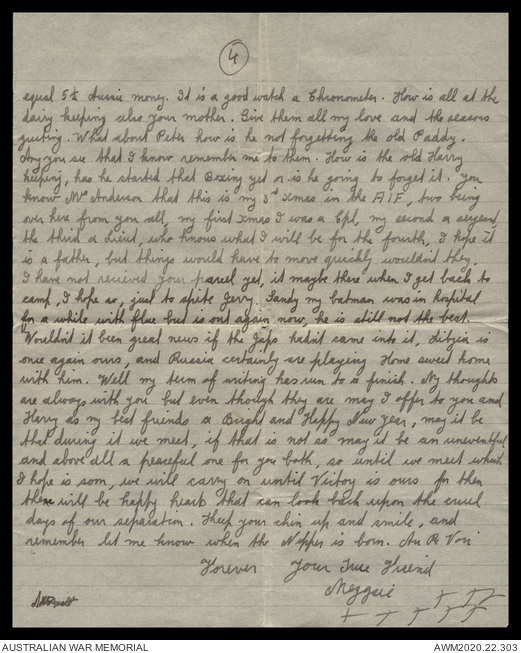 4
equal 5/- Aussie money. It is a good watch a Chronometer. How is all at the
dairy keeping also your mother. Give them all my love and the seasons
greeting. What about Peter how is he not forgetting the old Paddy.
Any you see that I know remember me to them. How is the old Harry
keeping, has he started that Boxing yet or is he going to forget it. You
know Mrs Anderson that this is my 3rd Xmas in the AIF, two being
over here from you all, my first Xmas I was a Cpl, my second a
the third a Lieut, who knows what I will be for the fourth, I hope it
is a father, but things would have to move quickly wouldn't they.
I have not recieved your parcel yet, it maybe there when I get back to
camp, I hope so, just to spite Jerry. Sandy my batman was in hospital
for a while with flue but is out again now, he is still not the best.
Wouldn't it been great news if the Japs hadn't came into it, Libyia is
once again ours, and Russia certainly are playing Home sweet home
with him. Well my term of writing has run to a finish. My thoughts
are always with you but even though they are may I offer to you and
Harry as my best friends a Bright and Happy New Year, may it be
that during it we meet, if that is not so may it be an uneventful
and above all a peaceful one for you both, so until we meet which
I hope is soon, we will carry on until Victory is ours for then
there will be happy hearts that can look back upon the cruel
days of our separation. Keep your chin up and smile, and
remember let me know when the Nipper is born. Au Re Voir
Forever Your True Friend
Meggsie
AUSTRALIAN WAR MEMORIAL
AWM2020.22.303